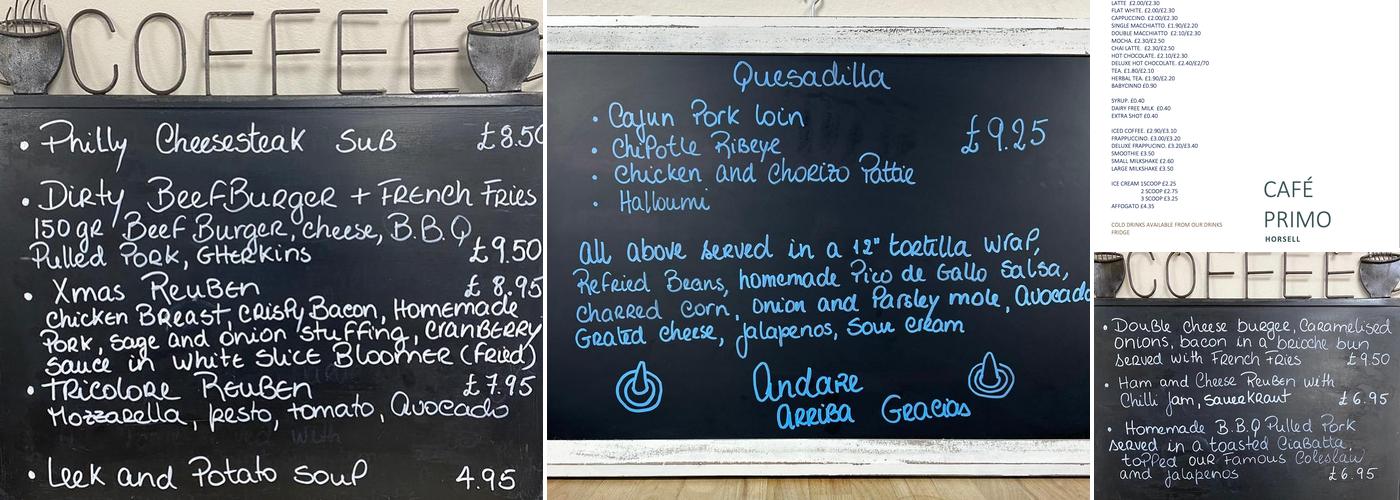 COFFEE
• Philly Cheesesteak SUB £8.50
• Dirty BeefBurger + French Fries
150gr Beef Burger, cheese, B.B.Q
Pulled Pork, GHerkins £9.50
• Xmas Reuben £8.95
chicken Breast crispy Bacon, Homemade
Pork, sage and onion stuffing, cranberry
sauce in white slice Bloomer (fried)
• Tricolore Reuben £7.95
Mozzarella, pesto, tomato, Avocado
• Leek and Potato soup 4.95
Quesadilla
• Cajun Pork loin
• Chipotle Ribeye £9.25
• Chicken and Chorizo Pattie
• Halloumi
All above served in a 12" tortilla wrap,
Refried Beans, homemade Pico de Gallo Salsa,
charred corn, onion and Parsley mole, Avocado
Grated cheese, jalapenos, Sour cream
Andare
Arriba Gracias
LATTE £2.00/£2.30
FLAT WHITE. £2.00/£2.30
CAPPUCCINO. £2.00/£2.30
SINGLE MACCHIATTO. £1.90/£2.20
DOUBLE MACCHIATTO £2.10/£2.30
MOCHA. £2.30/£2.50
CHAI LATTE. £2.30/£2.50
HOT CHOCOLATE. £2.10/£2.30
DELUXE HOT CHOCOLATE. £2.40/£2/70
TEA. £1.80/£2.10
HERBAL TEA. £1.90/£2.20
BABYCINNO £0.90
SYRUP. £0.40
DAIRY FREE MILK £0.40
EXTRA SHOT £0.40
ICED COFFEE. £2.90/£3.10
FRAPPUCCINO. £3.00/£3.20
DELUXE FRAPPUCCINO. £3.20/£3.40
SMOOTHIE £3.50
SMALL MILKSHAKE £2.60
LARGE MILKSHAKE £3.50
ICE CREAM 1SCOOP £2.25
2 SCOOP £2.75
3 SCOOP £3.25
AFFOGATO £4.35
COLD DRINKS AVAILABLE FROM OUR DRINKS
FRIDGE
CAFÉ
PRIMO
HORSELL
COFFEE
• Double cheese burger, Caramelised
onions, bacon in a brioche bun
served with French Fries £9.50
• Ham and Cheese Reuben with
Chilli Jam, sauerkraut £6.95
• Homemade B.B.Q Pulled Pork
served in a toasted Ciabatta,
topped our Famous Coleslaw
and jalapenos £6.95